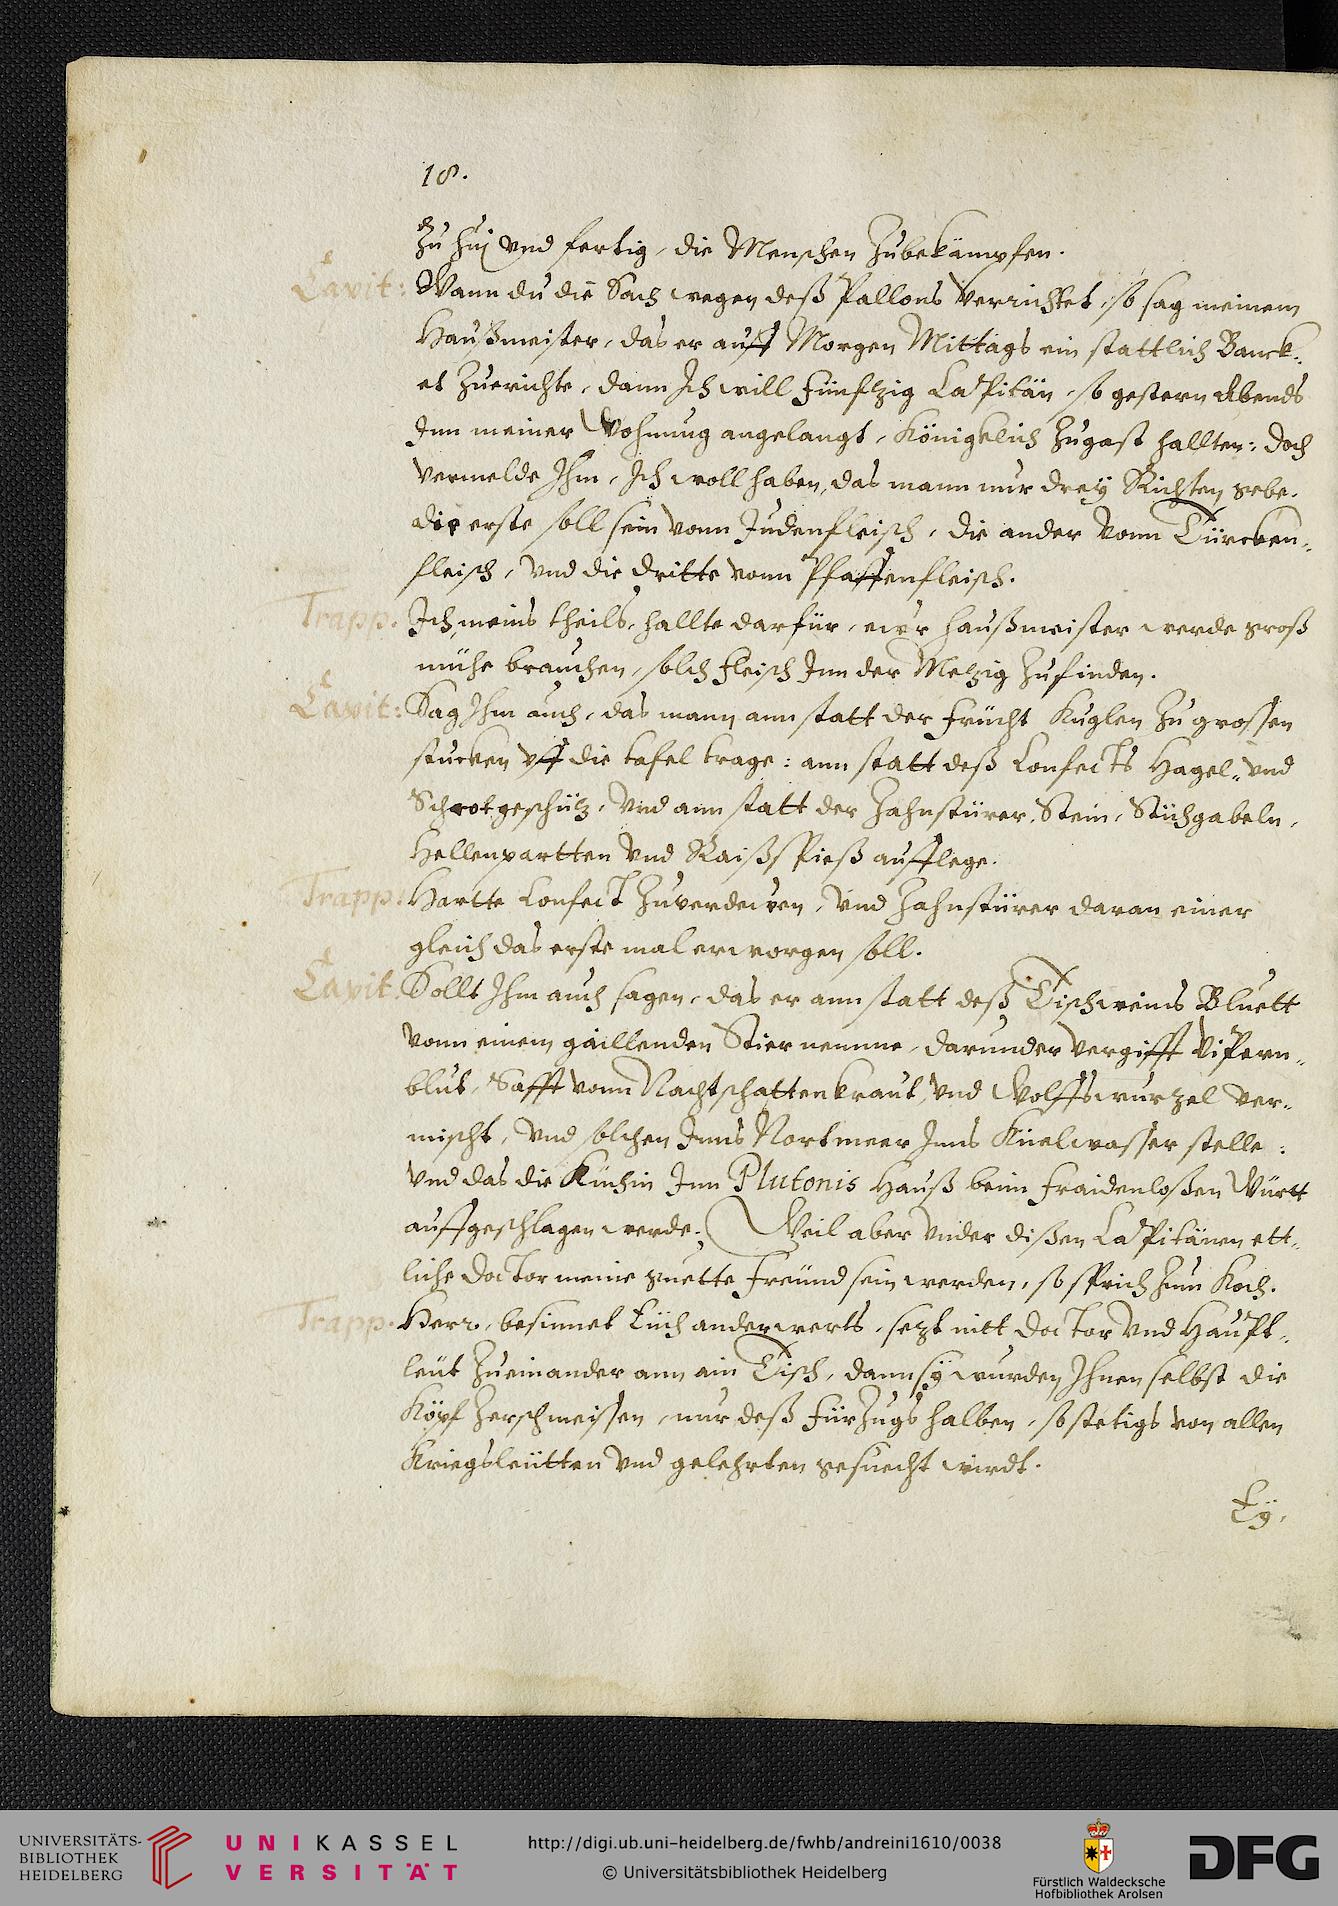 18.
zu huj vnd fertig, die Menschen zubekämpfen.
Capit: Wann du die Sach wegen deß Pallons verrichtet, so sag meinem
Haußmeister, das er auff Morgen Mittags ein stattlich Banck-
et zuerichte, dann Ich will fünfzig Capitän, so gestern Abends
Inn meiner Wohnung angelangt, Königklich zugast hallten: doch
vermelde Ihm, Ich woll haben, das mann nur dreÿ Richten gebe.
die erste soll sein vonn Judenfleisch, die ander vonn Türcken-
fleisch, vnd die dritte vonn Pfaffenfleisch.
Trapp. Ich meins theils, hallte darfür, ewr haußmeister werde groß
mühe brauchen, solch fleisch Inn der Metzig zufinden.
Capit: Sag Ihm auch, das mann ann statt der frücht Kuglen zu grossen
stucken vff die tafel trage: ann statt deß Confects Hagel- vnd
Schrotgeschüz, vnd ann statt der Zahnstürer, Stein, Stichgabeln,
Hellenpartten vnd Raißspieß aufflege.
Trapp: Hartte Confect zuverdewen, vnd Zahnstürer daran einer
gleich das erste mal erworgen soll.
Capit. Sollt Ihm auch sagen, das er ann statt deß Tischweins Bluett
vonn einem gaillenden Stier nemme, darunder vergifft vipern-
blut, Safft vonn Nachtschattenkraut, vnd Wolffswurzel ver-
mischt, vnd solchen Inns Nortmeer Inns Küelwasser stelle:
vnd das die Küchin Inn Plutonis Hauß beim fraidenloßen Württ
auffgeschlagen werde. Weil aber vnder dißen Capitänen ett-
liche doctor meine guette freünd sein werden, so sprich zum Koch.
Trapp. Herr, besinnet Eüch anderwerts, sezt nitt doctor vnd Haupt-
leüt zueinander ann ain Tisch, dann sÿ wurden Ihnen selbst die
Köpf zerschmeissen, nur deß fürzugs halben, so stetigs von allen
Kriegsleütten vnd gelehrten gesuecht wirdt.
Eÿ,
UNIVERSITÄTS-
BIBLIOTHEK
HEIDELBERG
UNIKASSEL
VERSITÄT
http://digi.ub.uni-heidelberg.de/fwhb/andreini1610/0038
© Universitätsbibliothek Heidelberg
Fürstlich Waldecksche
Hofbibliothek Arolsen
DFG